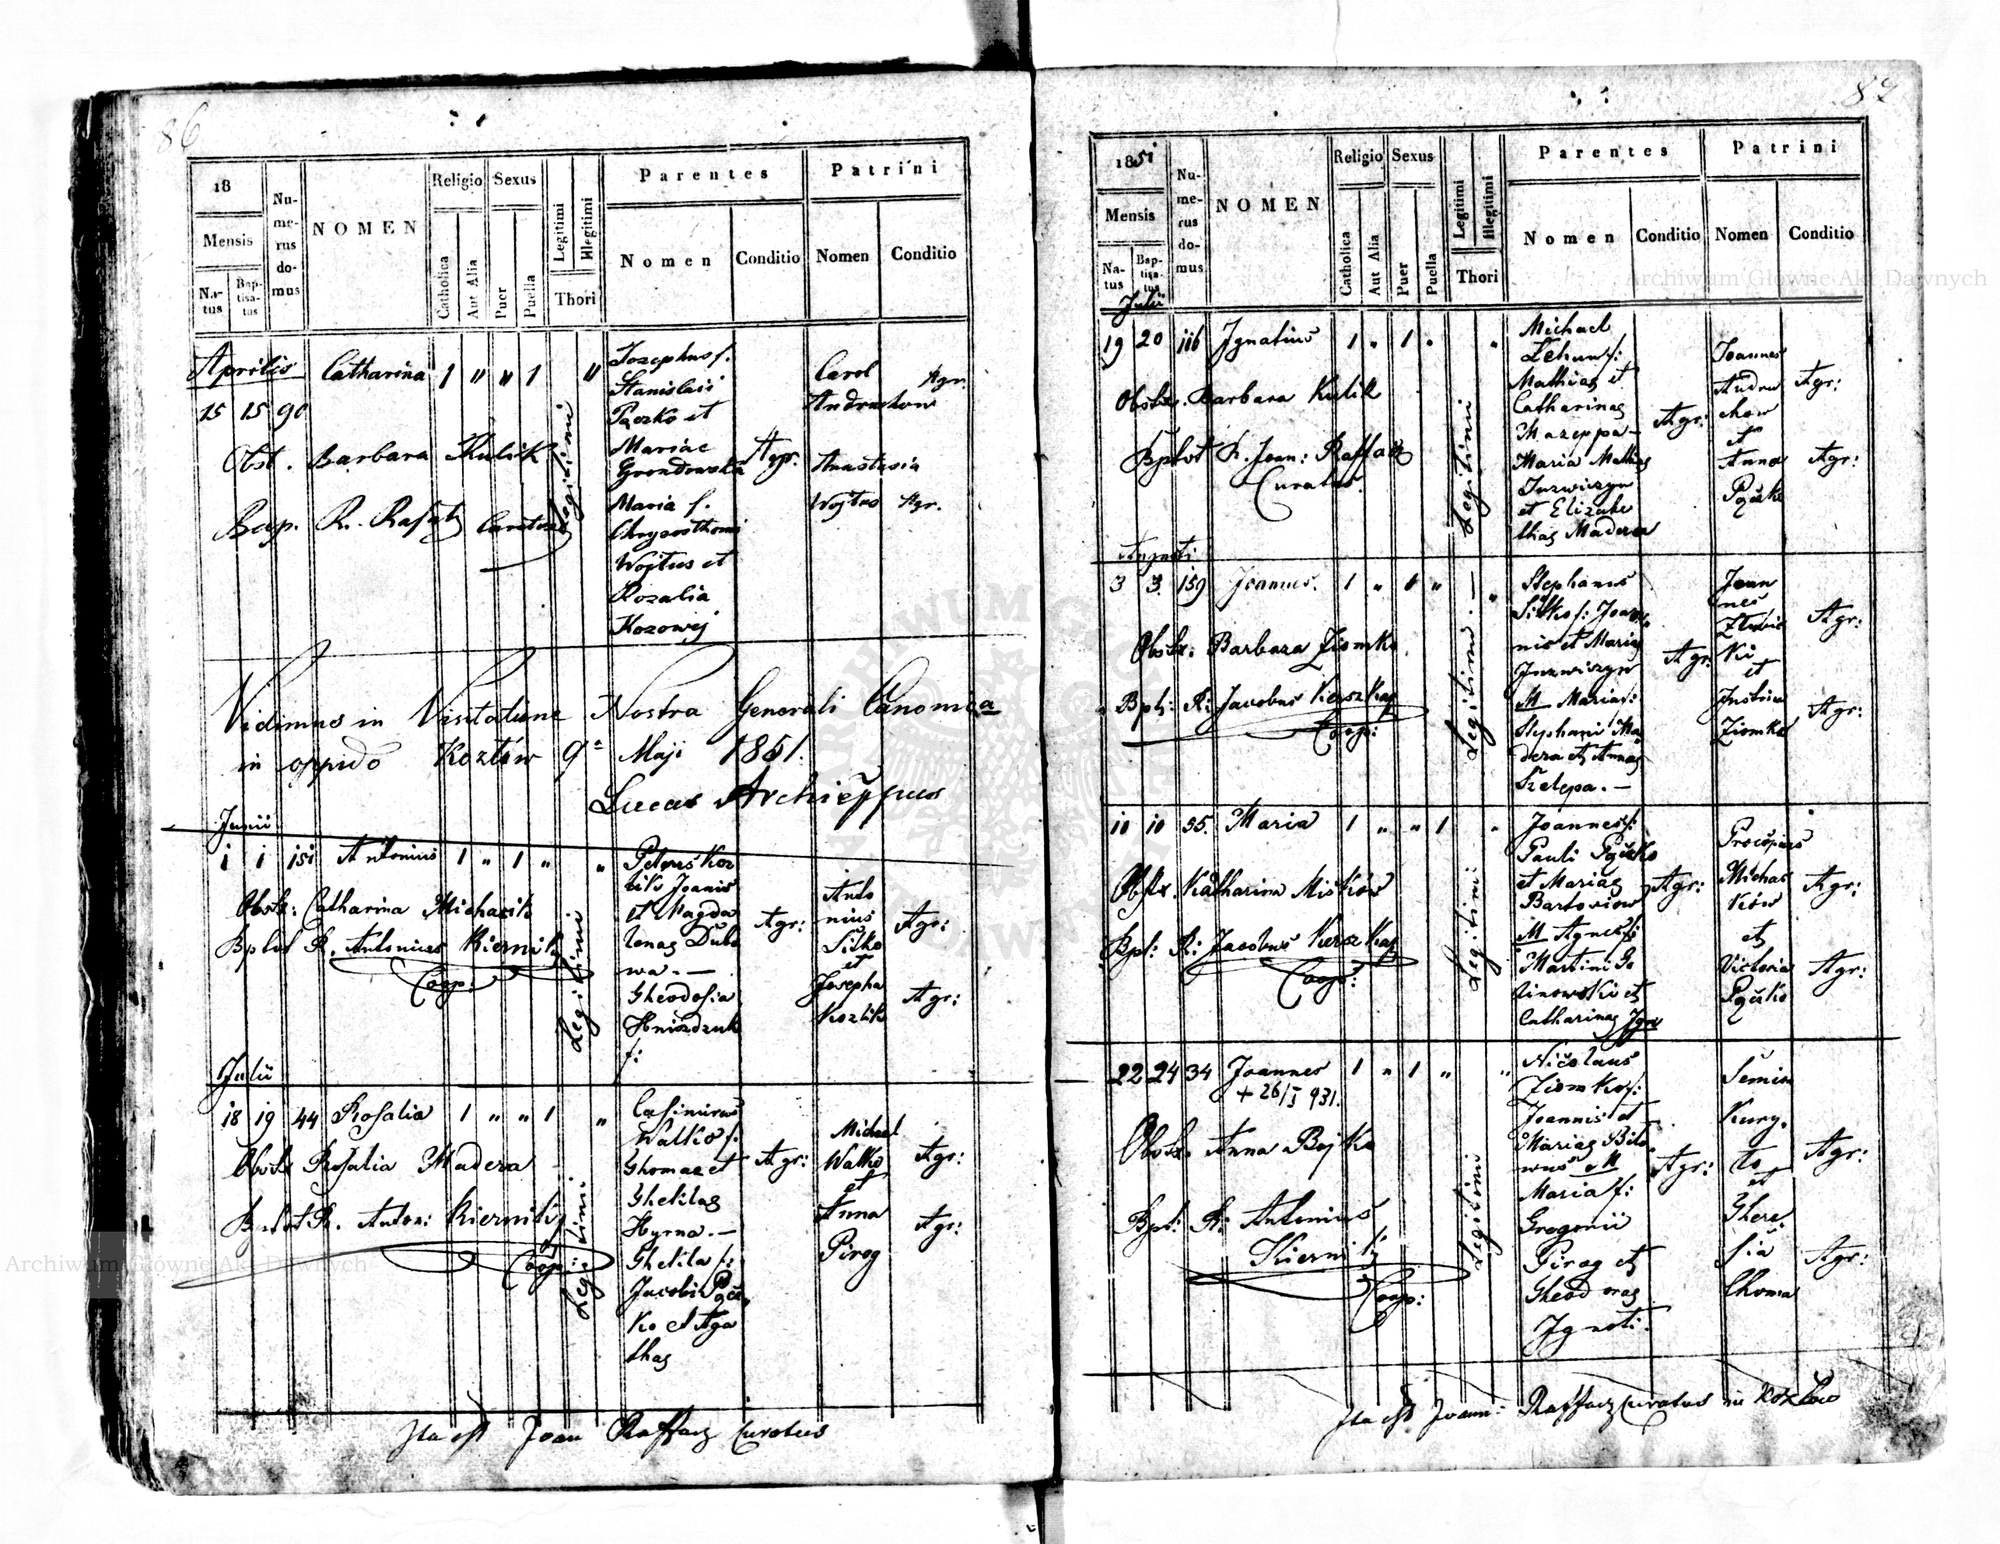 86
18
Mensis
Na-
tus
Bap-
tisa-
tus
Nu-
me-
rus
do-
mus
NOMEN
Religio
Catholica
Aut Alia
Sexus
Puer
Puella
Legitimi
Illegitimi
Thori
Parentes
Nomen
Conditio
Patrini
Nomen
Conditio
Aprilis
15 15 90
Catharina 1 " " 1 "
Obst. Barbara Kulik
Bap. R. Rafacz Curatus
Legitimi
Josephus f.
Stanislai
Paczko et
Mariae
Grondowska
Maria f.
Chrysosthomi
Wojtus et
Rozalia
Kozowej
Agr.
Carol
Andruchow
Agr.
Anastasia
Wojtus Agr.
Vidimus in Visitatione Nostra Generali Canonica
in oppido Kozłów 9a Maji 1851.
Lucas Archieppus
Junii
1 1 151 Antonius 1 " 1 " "
Obstx: Catharina Michasik
Bptvt R. Antonius Kiernik
Coop:
Legitimi
Petrus Koz
lik Joanis
et Magda
lenae Dubo
wa. —
Theodosia
Hniozdzuk
f:
Agr:
Anto
nius
Sitko
et
Josepha
Kozlik
Agr:
Agr:
Julii
18 19 44 Rosalia 1 " " 1 "
Obstx Rosalia Madera
Bptvt R. Anton: Kiernik
Coop:
Legitimi
Casimirus
Walko f.
Thomae et
Theklae
Hyrna. —
Thekla f:
Jacobi Pącz
ko et Aga
thae
Agr:
Michael
Walko
et
Anna
Pirog
Agr:
Agr:
Ita est Joan Raffacz Curatus
87
1851
Mensis
Na-
tus
Bap-
tisa-
tus
Nu-
me-
rus
do-
mus
NOMEN
Religio
Catholica
Aut Alia
Sexus
Puer
Puella
Legitimi
Illegitimi
Thori
Parentes
Nomen
Conditio
Patrini
Nomen
Conditio
Julii
19 20 116 Ignatius 1 " 1 " "
Obstx. Barbara Kulik
Bptvt R. Joan: Raffacz
Curatus.
Legitimi
Michael
Lehun f:
Mathiae et
Catharinae
Mazeppa —
Maria Mathiae
Juzwiszyn
et Elizabe
thae Madera
Agr:
Joannes
Andru
chow
et
Anna
Pączko
Agr:
Agr:
Augusti
3 3. 159 Joannes. 1 " 1 " "
Obstx: Barbara Ziomko.
Bpt: R: Jacobus Kierszka
Coop:
Legitimi. —
Stephanus
Sitko f: Joan
nis et Mariae
Juzwiszyn
M Maria f:
Stephani Ma
dera et Annae
Szelepa. —
Agr:
Joan
nes
et
Justina
Ziomko
Agr:
Agr:
10 10 35. Maria 1 " " 1 "
Obstx. Katharina Miśków
Bpt: R: Jacobus Kierszka
Coop:
Legitimi
Joannes f:
Pauli Pączko
et Mariae
Bartoviow
M Agnes f:
Martini Go
linowski et
Catharinae Ign
Agr:
Procopius
Michas
ków
et
Victoria
Pączko
Agr:
Agr:
22 24 34 Joannes 1 " 1 " "
+ 26/I 931.
Obstx. Anna Bojko
Bpt: R: Antonius
Kiernik
Coop:
Legitimi
Nicolaus
Ziomko f:
Joannis et
Mariae Bilo
wus M
Maria f:
Gregorii
Pirog et
Theodorae
Ignoti.
Agr:
Semin
Kury.
to
et
There.
sia
Choma
Agr:
Agr:
Ita est Joann: Raffacz Curatus in Kozłow
Archiwum Główne Akt Dawnych
Archiwum Główne Akt Dawnych